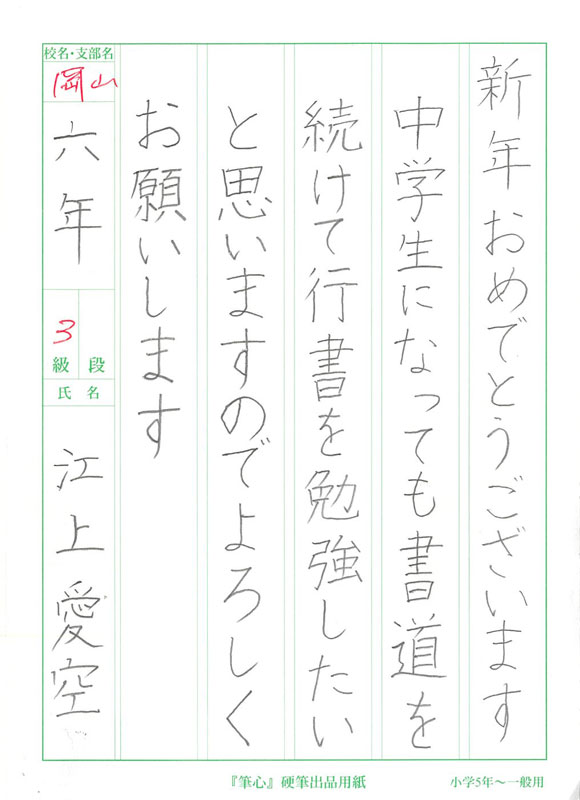 新年おめでとうございます
中学生になっても書道を
続けて行書を勉強したい
と思いますのでよろしく
お願いします
校名・支部名
岡山
六年
3
級 段
氏 名
江上愛空
『筆心』硬筆出品用紙
小学5年〜一般用